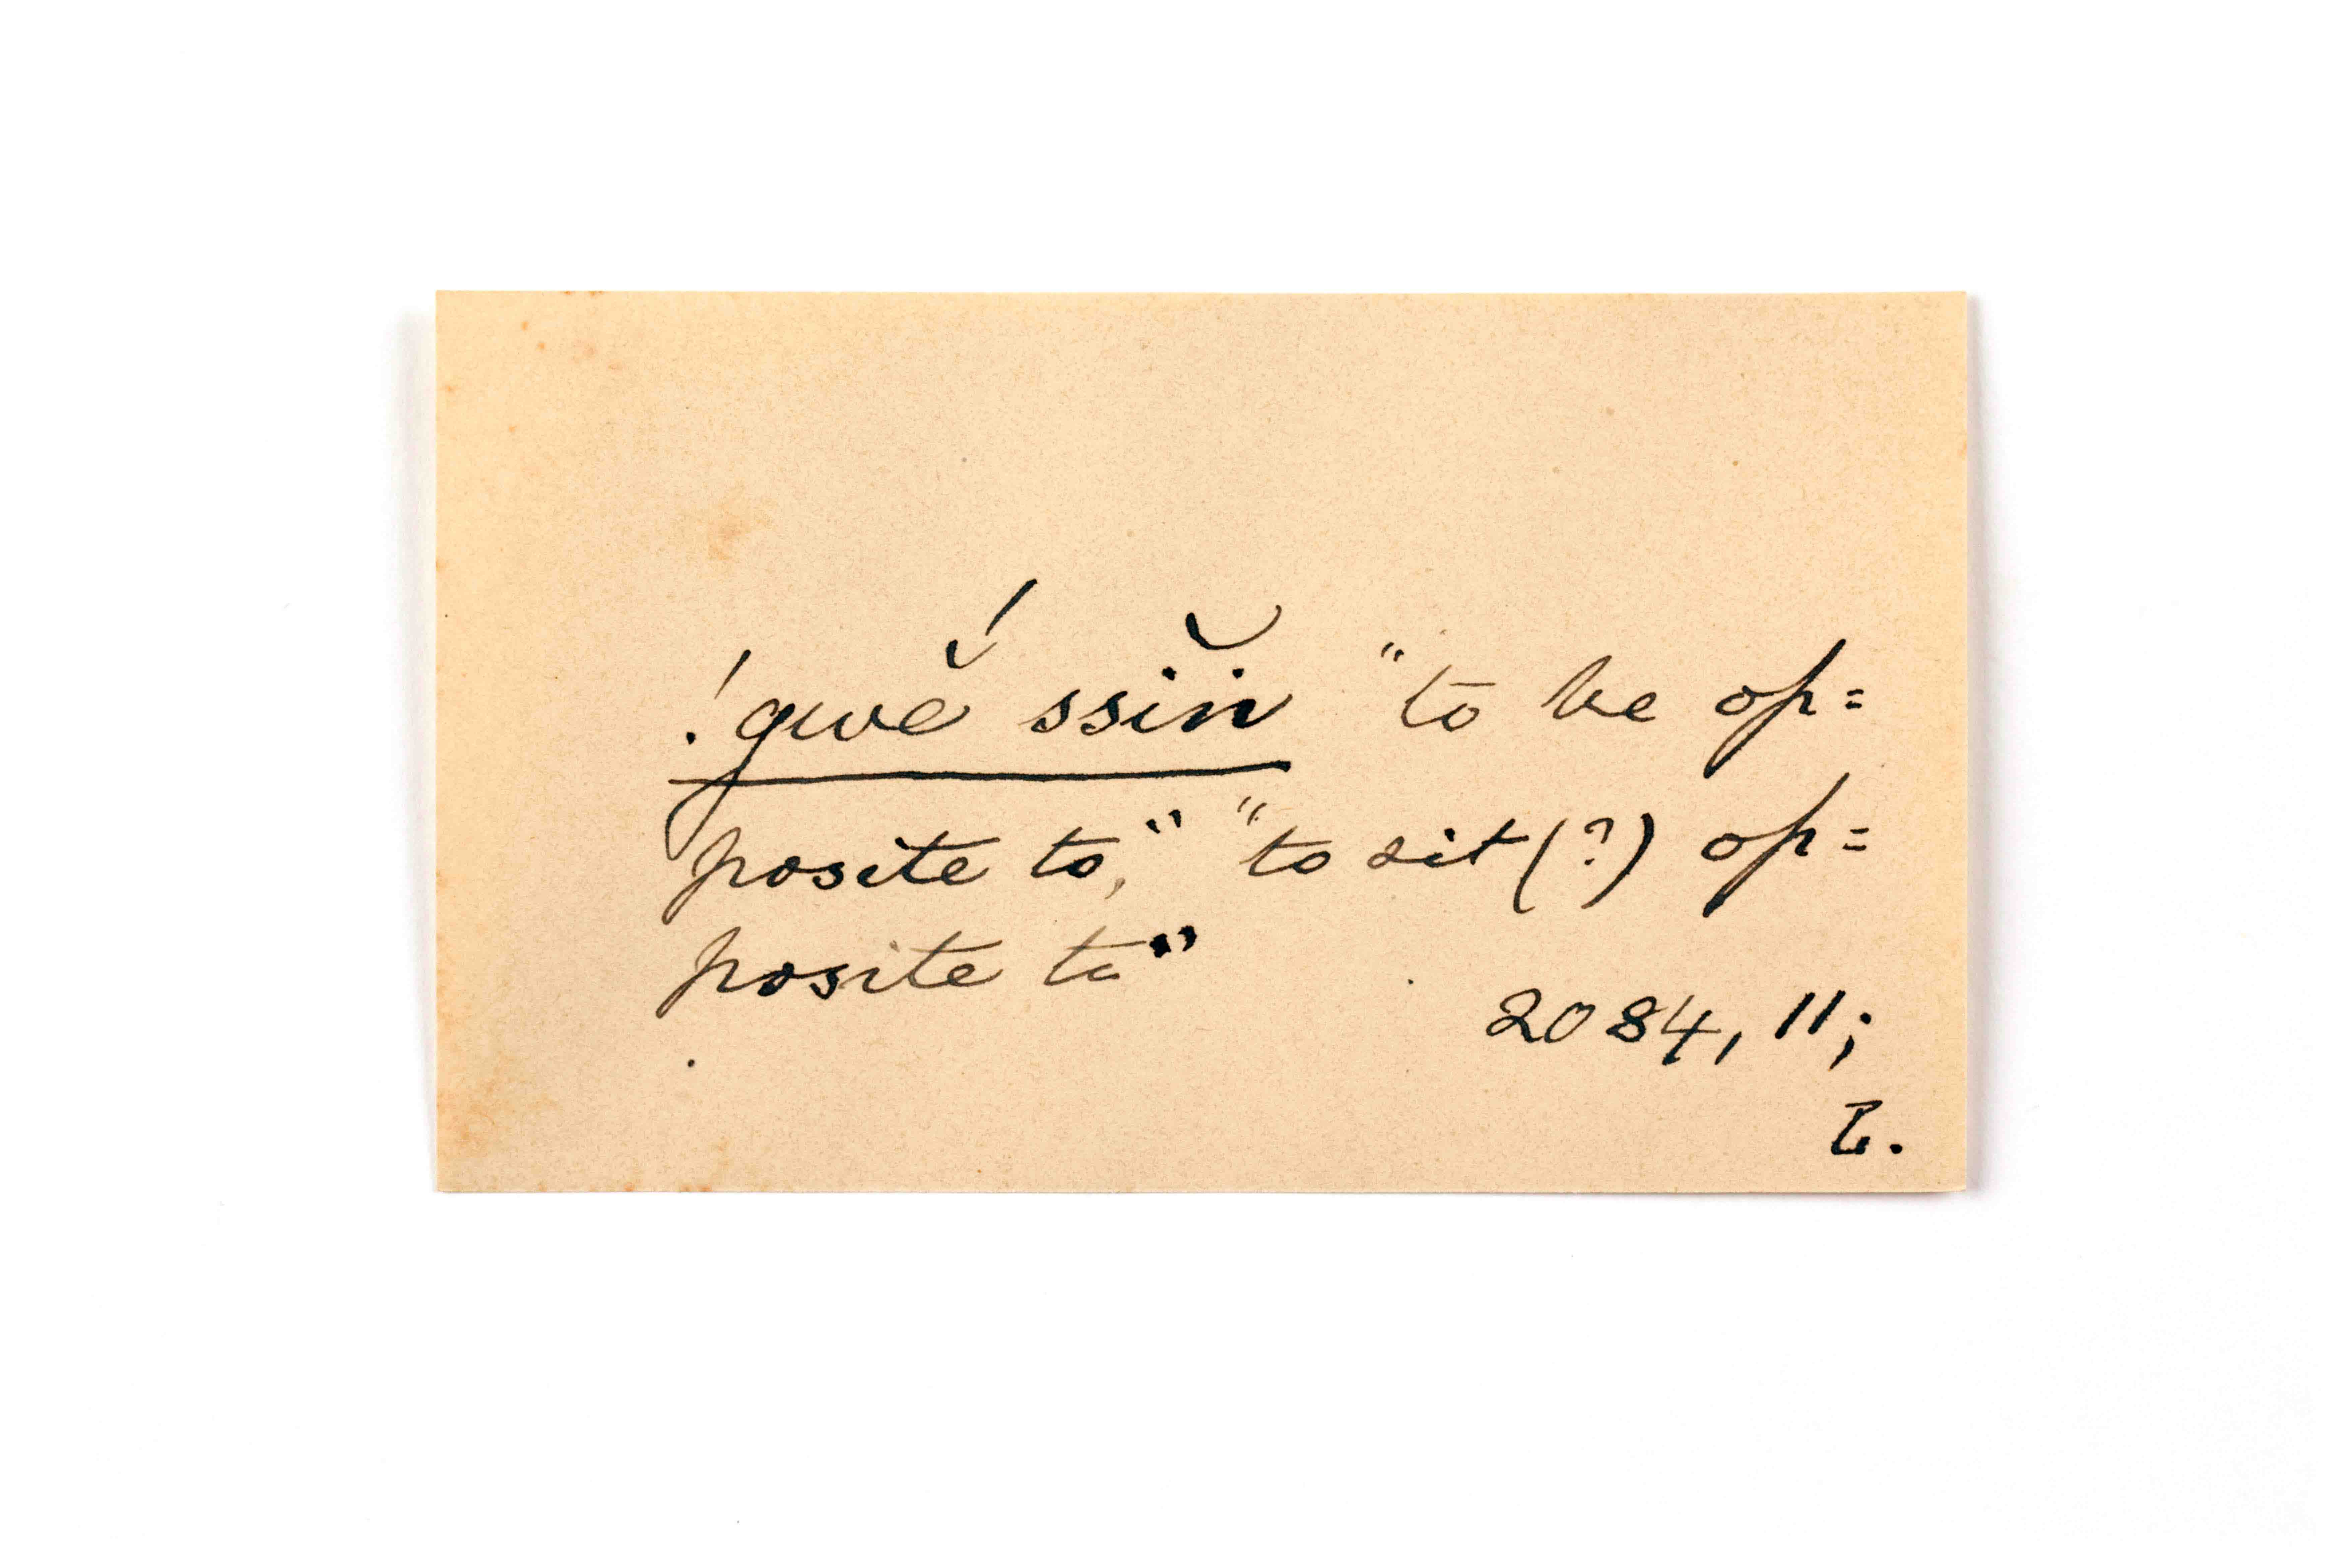 !gwĕ́ ssĭṅ "to be op=
posite to," "to sit (?) op=
posite to"
2084, 11;
L.